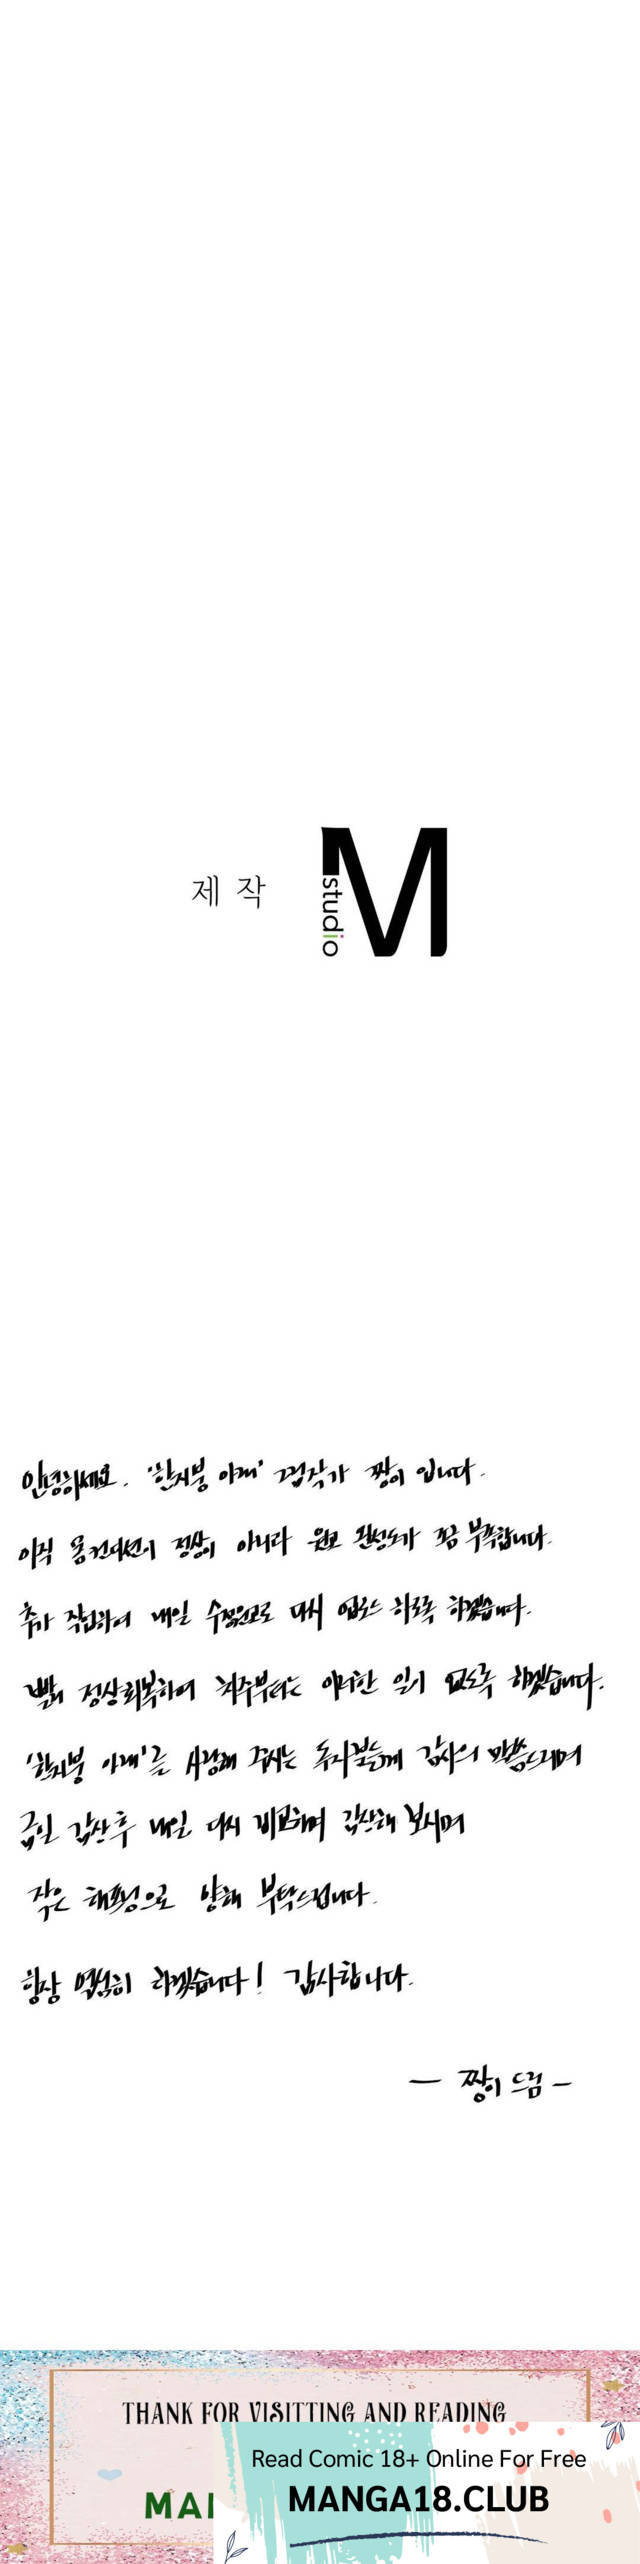 제 작
M
studio
안녕하세요. '한지붕 아래' 그림작가 짱이 입니다.
아직 몸 컨디션이 정상이 아니라 원고 완성도가 조금 부족합니다.
추가 작업하여 내일 수정원고로 다시 업로드 하도록 하겠습니다.
빨리 정상회복하여 차주부터는 이러한 일이 없도록 하겠습니다.
'한지붕 아래'를 사랑해 주시는 독자분들께 감사의 말씀드리며
금일 감상 후 내일 다시 비교하며 감상해 보시며
작은 해프닝으로 양해 부탁드립니다.
항상 열심히 하겠습니다! 감사합니다.
— 짱이 드림 —
THANK FOR VISITTING AND READING
Read Comic 18+ Online For Free
MANGA18.CLUB